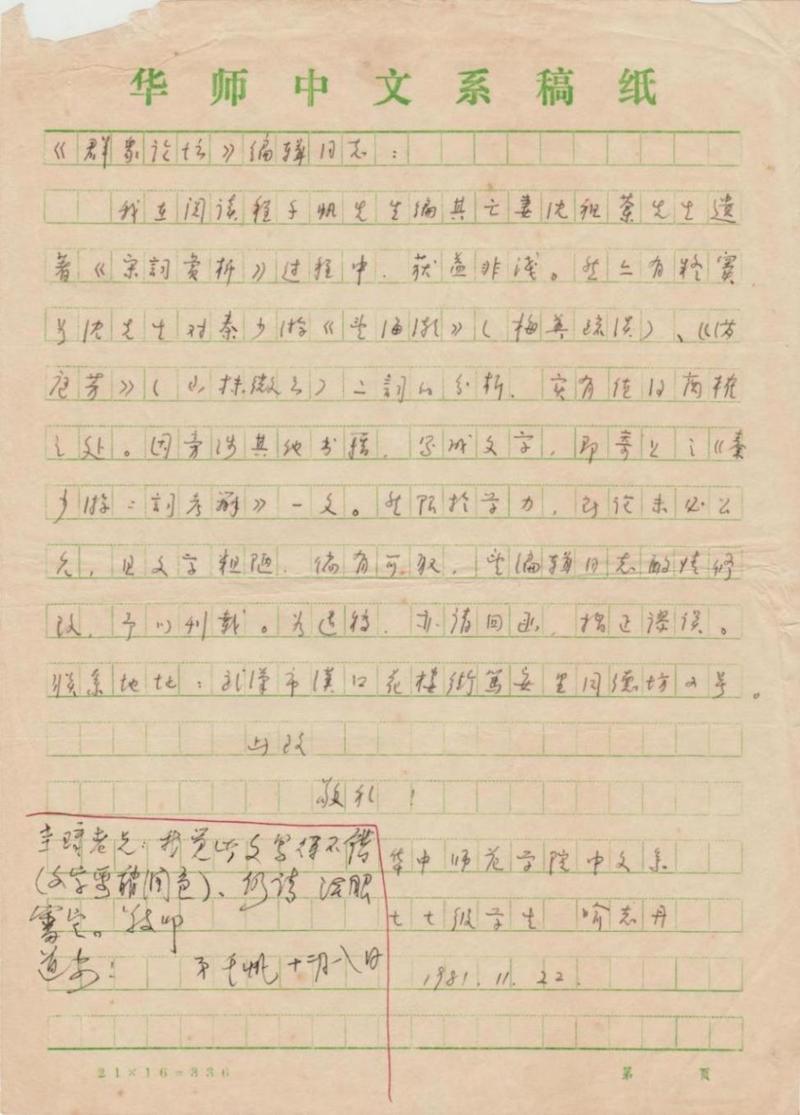 华师中文系稿纸
《群众论坛》编辑同志：
我在阅读程千帆先生编其亡妻沈祖棻先生遗
著《宋词赏析》过程中，获益非浅。然亦有疑窦
沈先生对秦少游《望海潮》（梅英疏淡）、《满
庭芳》（山抹微云）二词的分析，实有值得商榷
之处。因旁涉其他书籍，写成文字，即寄上之《秦
少游二词考辨》一文。然限於学力，所论未必公
允，且文字粗陋，倘有可取，望编辑同志酌情修
改，予以刊载。若退稿，亦请回函，指正谬误。
联系地址：武漢市漢口花楼街篤安里同德坊2号。
此致
敬礼！
华中师范学院中文系
七七级学生 喻志丹
1981.11.22.
老兄：我觉此文写得不错
（文字要稍润色）、仍请法眼
審定。敬叩
道安！ 弟千帆 十二月八日
21×16=336
第 页